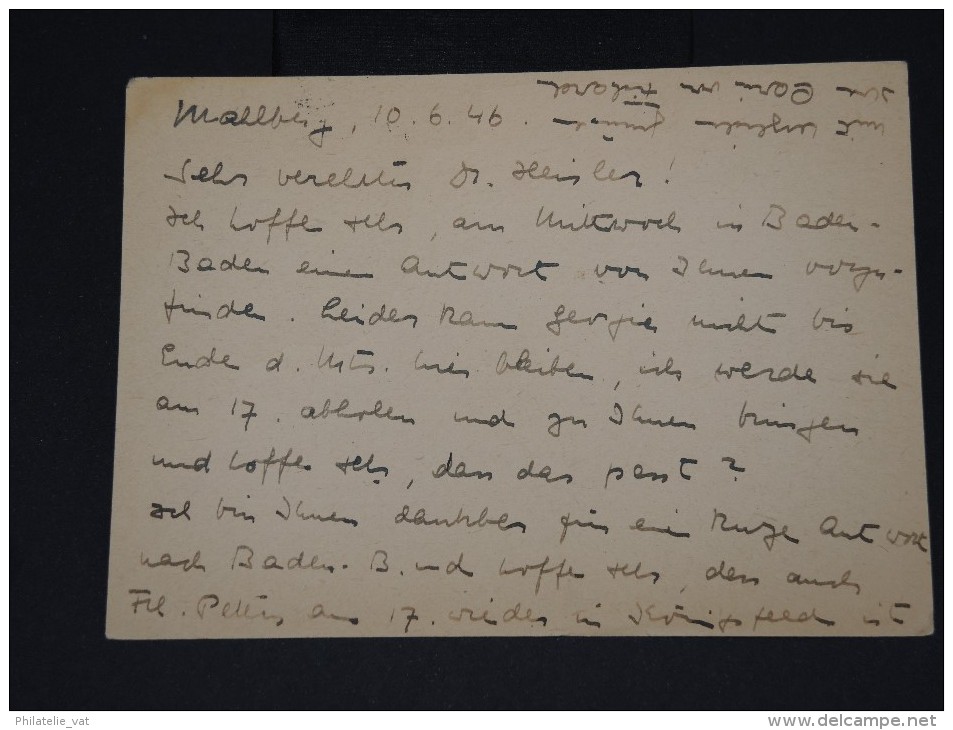 Mahlberg, 10.6.46.
Sehr verehrter Dr. Heisler!
Ich hoffe sehr, am Mittwoch in Baden-
Baden eine Antwort von Ihnen vorzu-
finden. Leider kann Georgie nicht bis
Ende d. Mts. hier bleiben, ich werde sie
am 17. abholen und zu Ihnen bringen
und hoffe sehr, dass das passt?
Ich bin Ihnen dankbar für eine kurze Antwort
nach Baden-B. und hoffe sehr, dass auch
Frl. Peters am 17. wieder in Königsfeld ist
mit
Ihre
von
Philatelie_vat
www.delcampe.net